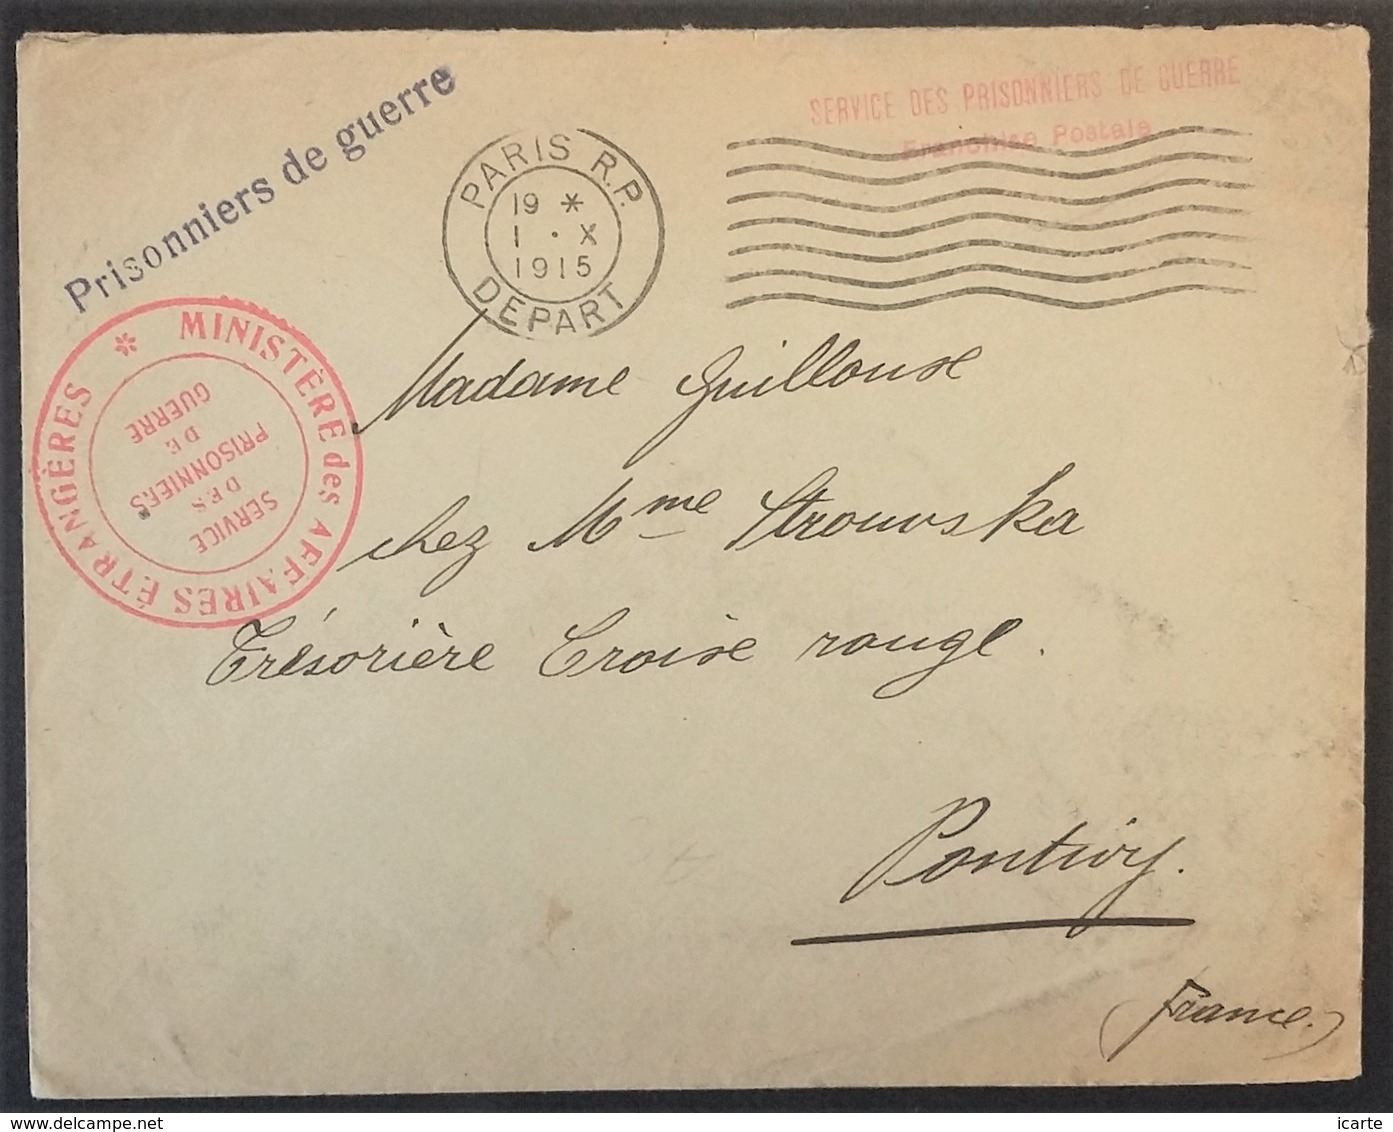 Prisonniers de guerre
SERVICE DES PRISONNIERS DE GUERRE
Franchise Postale
PARIS R.P.
19 *
1 · X
1915
DEPART
MINISTÈRE des AFFAIRES ÉTRANGÈRES *
SERVICE
DES
PRISONNIERS
DE
GUERRE
Madame Guillouse
chez Mme Strouwska
Trésorière Croise rouge.
Pontivy.
(France.)
icarte